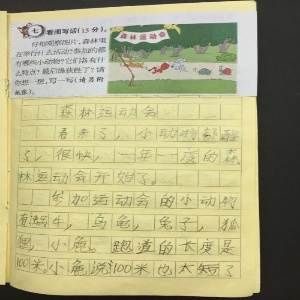 七、看图写话(15分)。
仔细观察图片,森林里
在举行什么活动?参加的都
有哪些小动物?它们各有什
么特点?最后谁获胜了?请
你想一想,写一写(请另附
纸张)。
森林运动会
森林运动会
春来了,小动物都醒
了,很快,一年一度的森
林运动会开始了。
参加运动会的小动物
有蜗牛,乌龟,兔子,狐
狸,小兔。跑道的长度是
100米。小兔说:100米也太短了